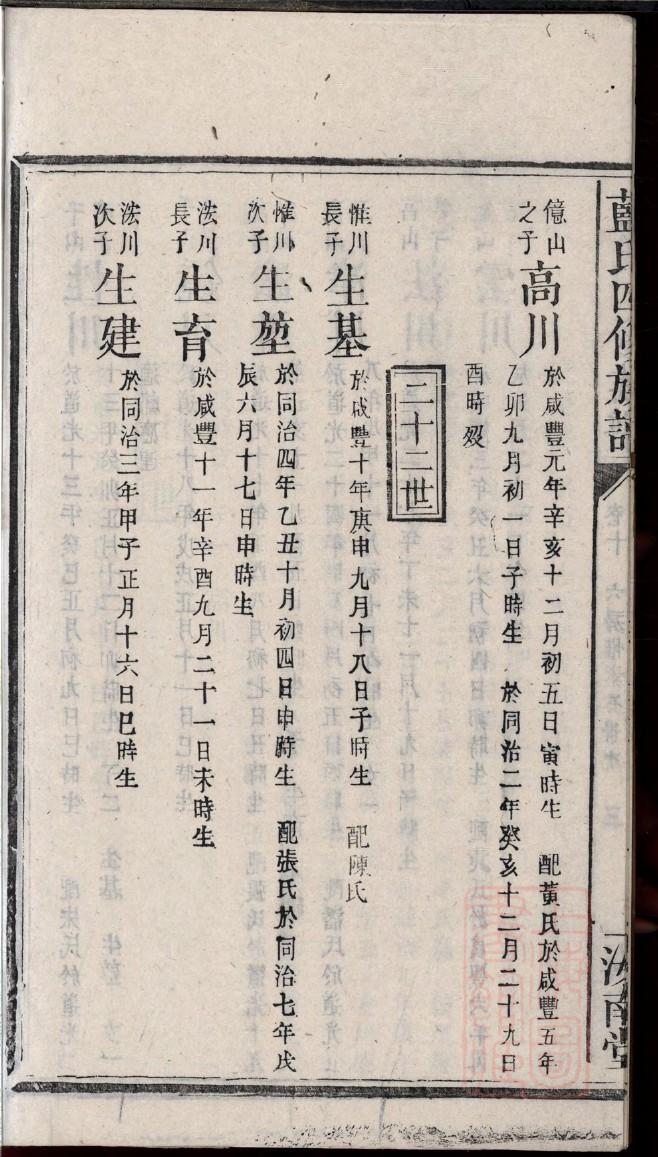 藍氏四修族譜
卷十
汝南堂
億山之子
高川
於咸豐元年辛亥十二月初五日寅時生 配黃氏於咸豐五年
乙卯九月初一日子時生 於同治二年癸亥十二月二十九日
酉時歿
二十二世
惟川長子
生基
於咸豐十年庚申九月十八日子時生 配陳氏
惟川次子
生堃
於同治四年乙丑十月初四日申時生 配張氏於同治七年戊
辰六月十七日申時生
浤川長子
生育
於咸豐十一年辛酉九月二十一日未時生
浤川次子
生建
於同治三年甲子正月十六日巳時生